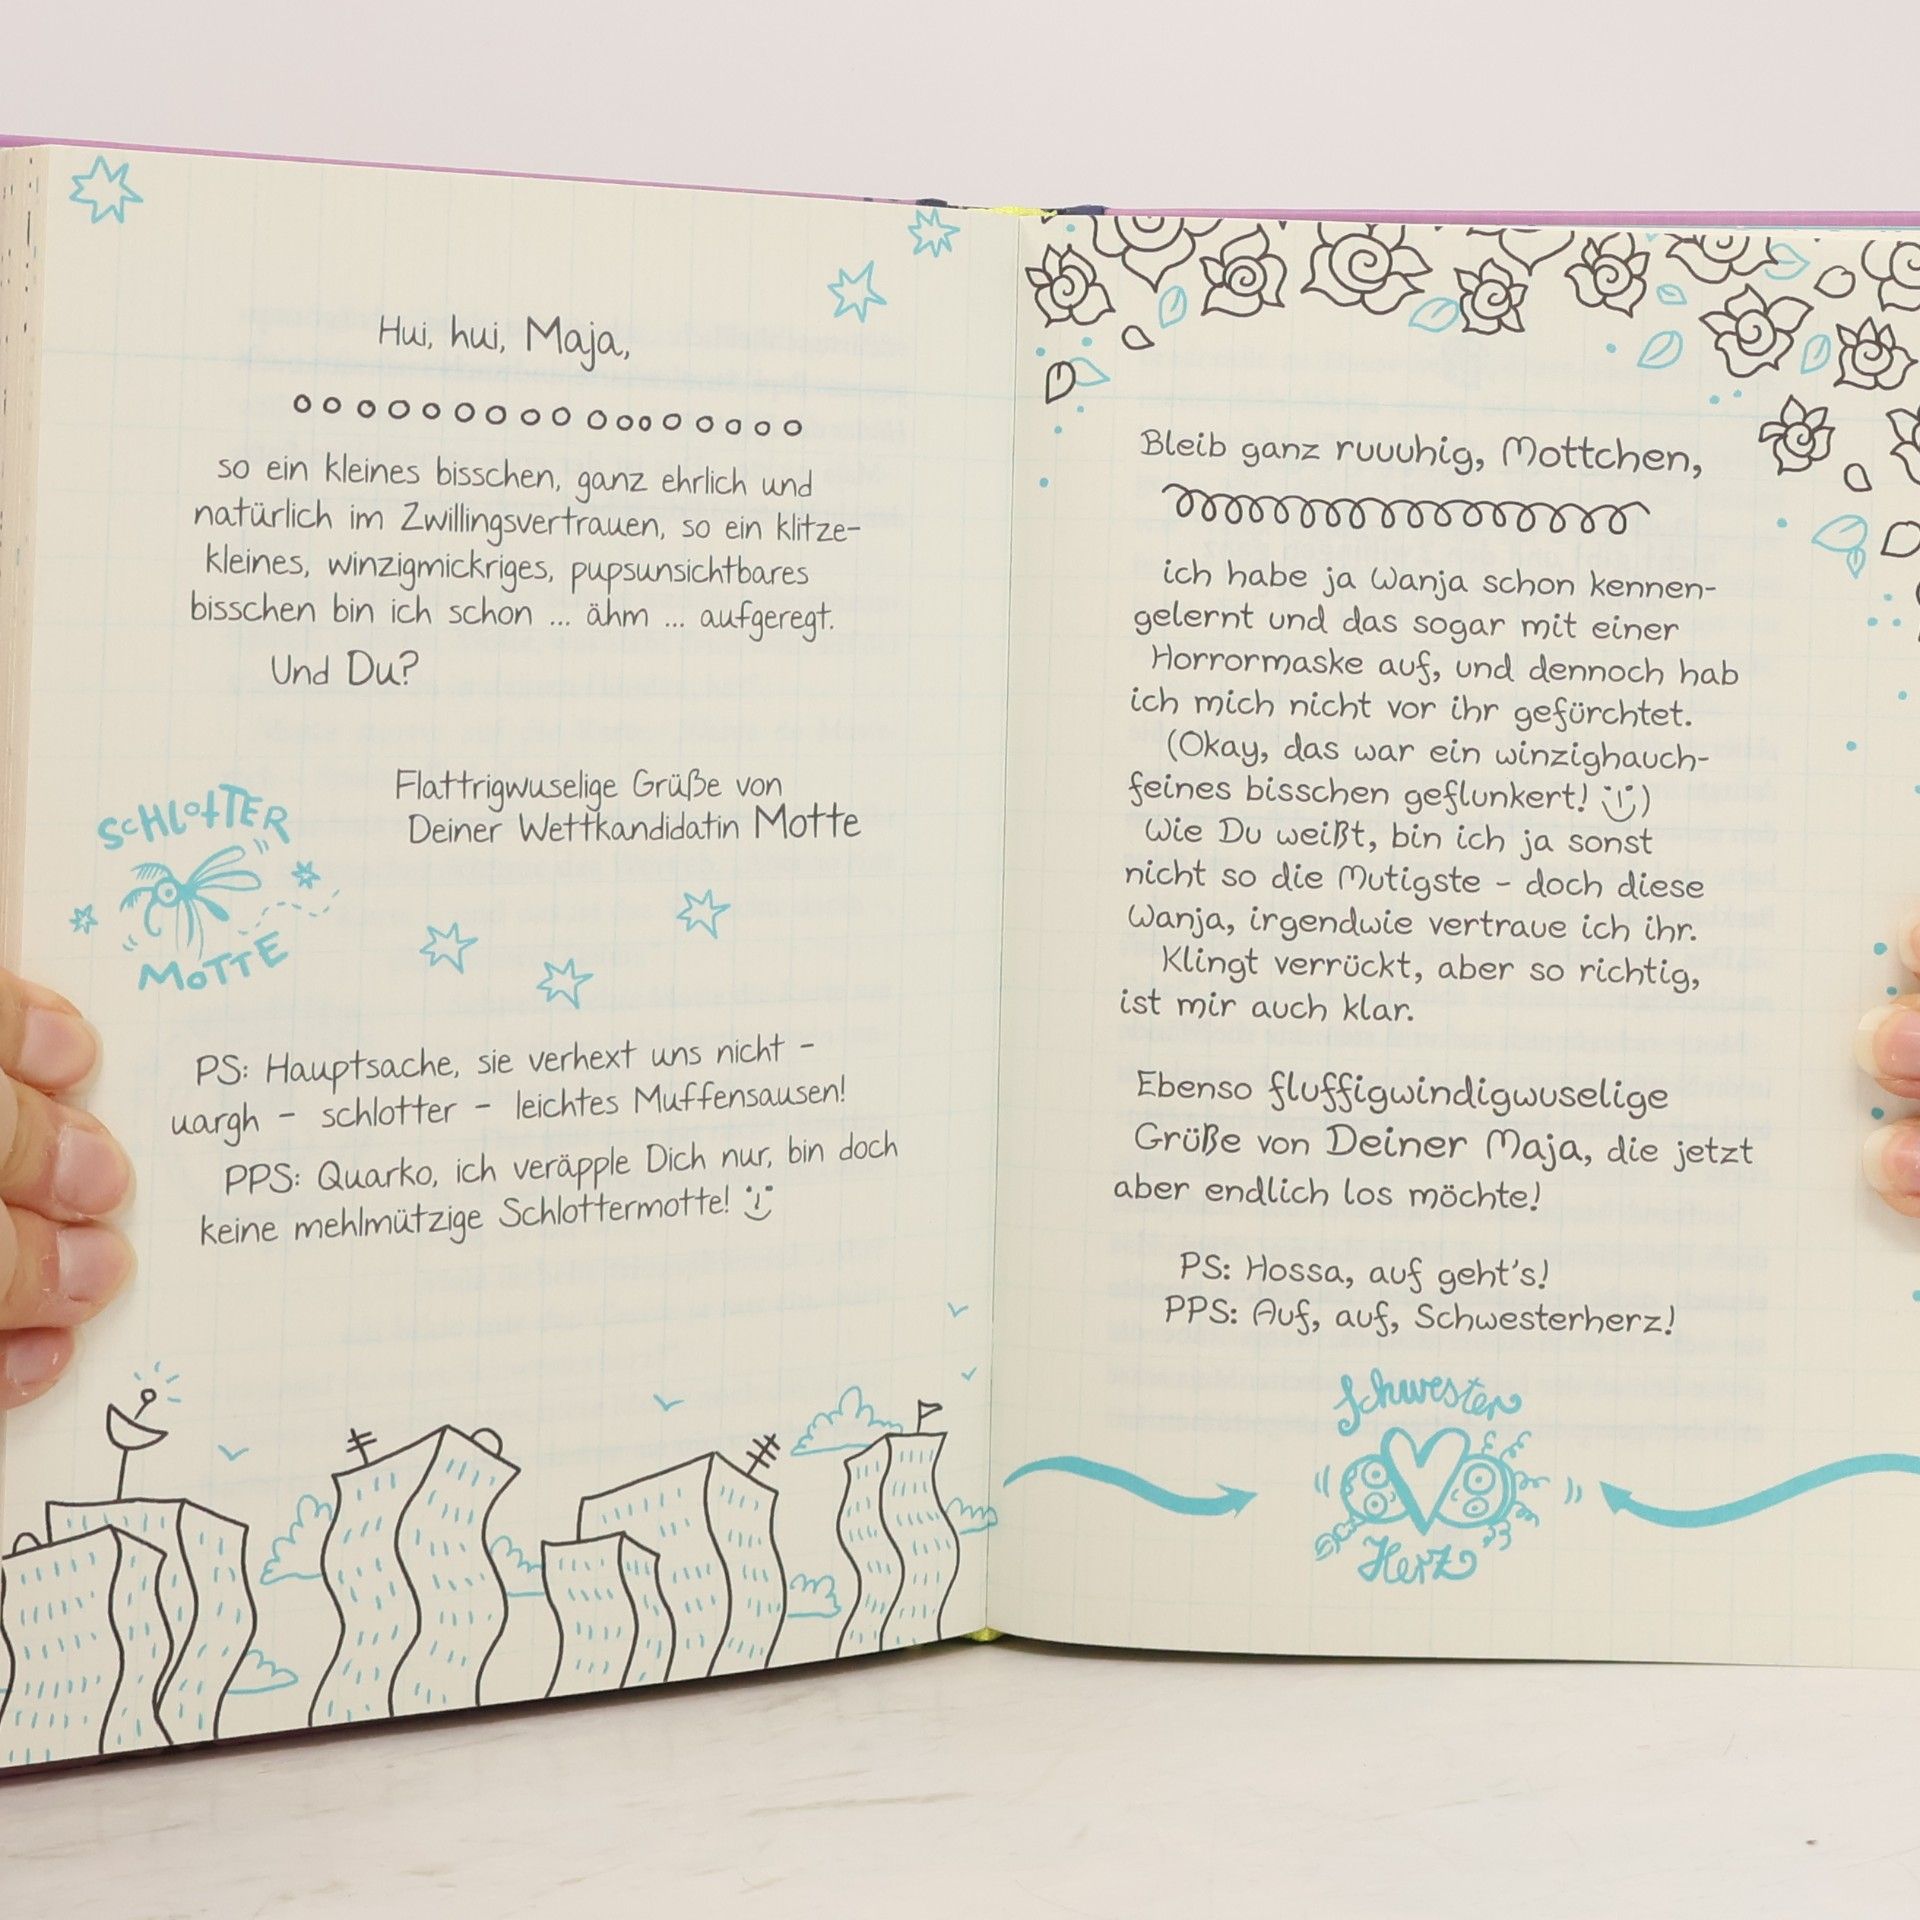 Hui, hui, Maja,
so ein kleines bisschen, ganz ehrlich und
natürlich im Zwillingsvertrauen, so ein klitze-
kleines, winzigmickriges, pupsunsichtbares
bisschen bin ich schon ... ähm ... aufgeregt.
Und Du?
Flattrigwuselige Grüße von
Deiner Wettkandidatin Motte
SCHLOTTER
MOTTE
PS: Hauptsache, sie verhext uns nicht –
uargh – schlotter – leichtes Muffensausen!
PPS: Quarko, ich veräpple Dich nur, bin doch
keine mehlmützige Schlottermotte!
Bleib ganz ruuuhig, Mottchen,
ich habe ja Wanja schon kennen-
gelernt und das sogar mit einer
Horrormaske auf, und dennoch hab
ich mich nicht vor ihr gefürchtet.
(Okay, das war ein winzighauch-
feines bisschen geflunkert! )
Wie Du weißt, bin ich ja sonst
nicht so die Mutigste – doch diese
Wanja, irgendwie vertraue ich ihr.
Klingt verrückt, aber so richtig,
ist mir auch klar.
Ebenso fluffigwindigwuselige
Grüße von Deiner Maja, die jetzt
aber endlich los möchte!
PS: Hossa, auf geht's!
PPS: Auf, auf, Schwesterherz!
Schwester
Herz